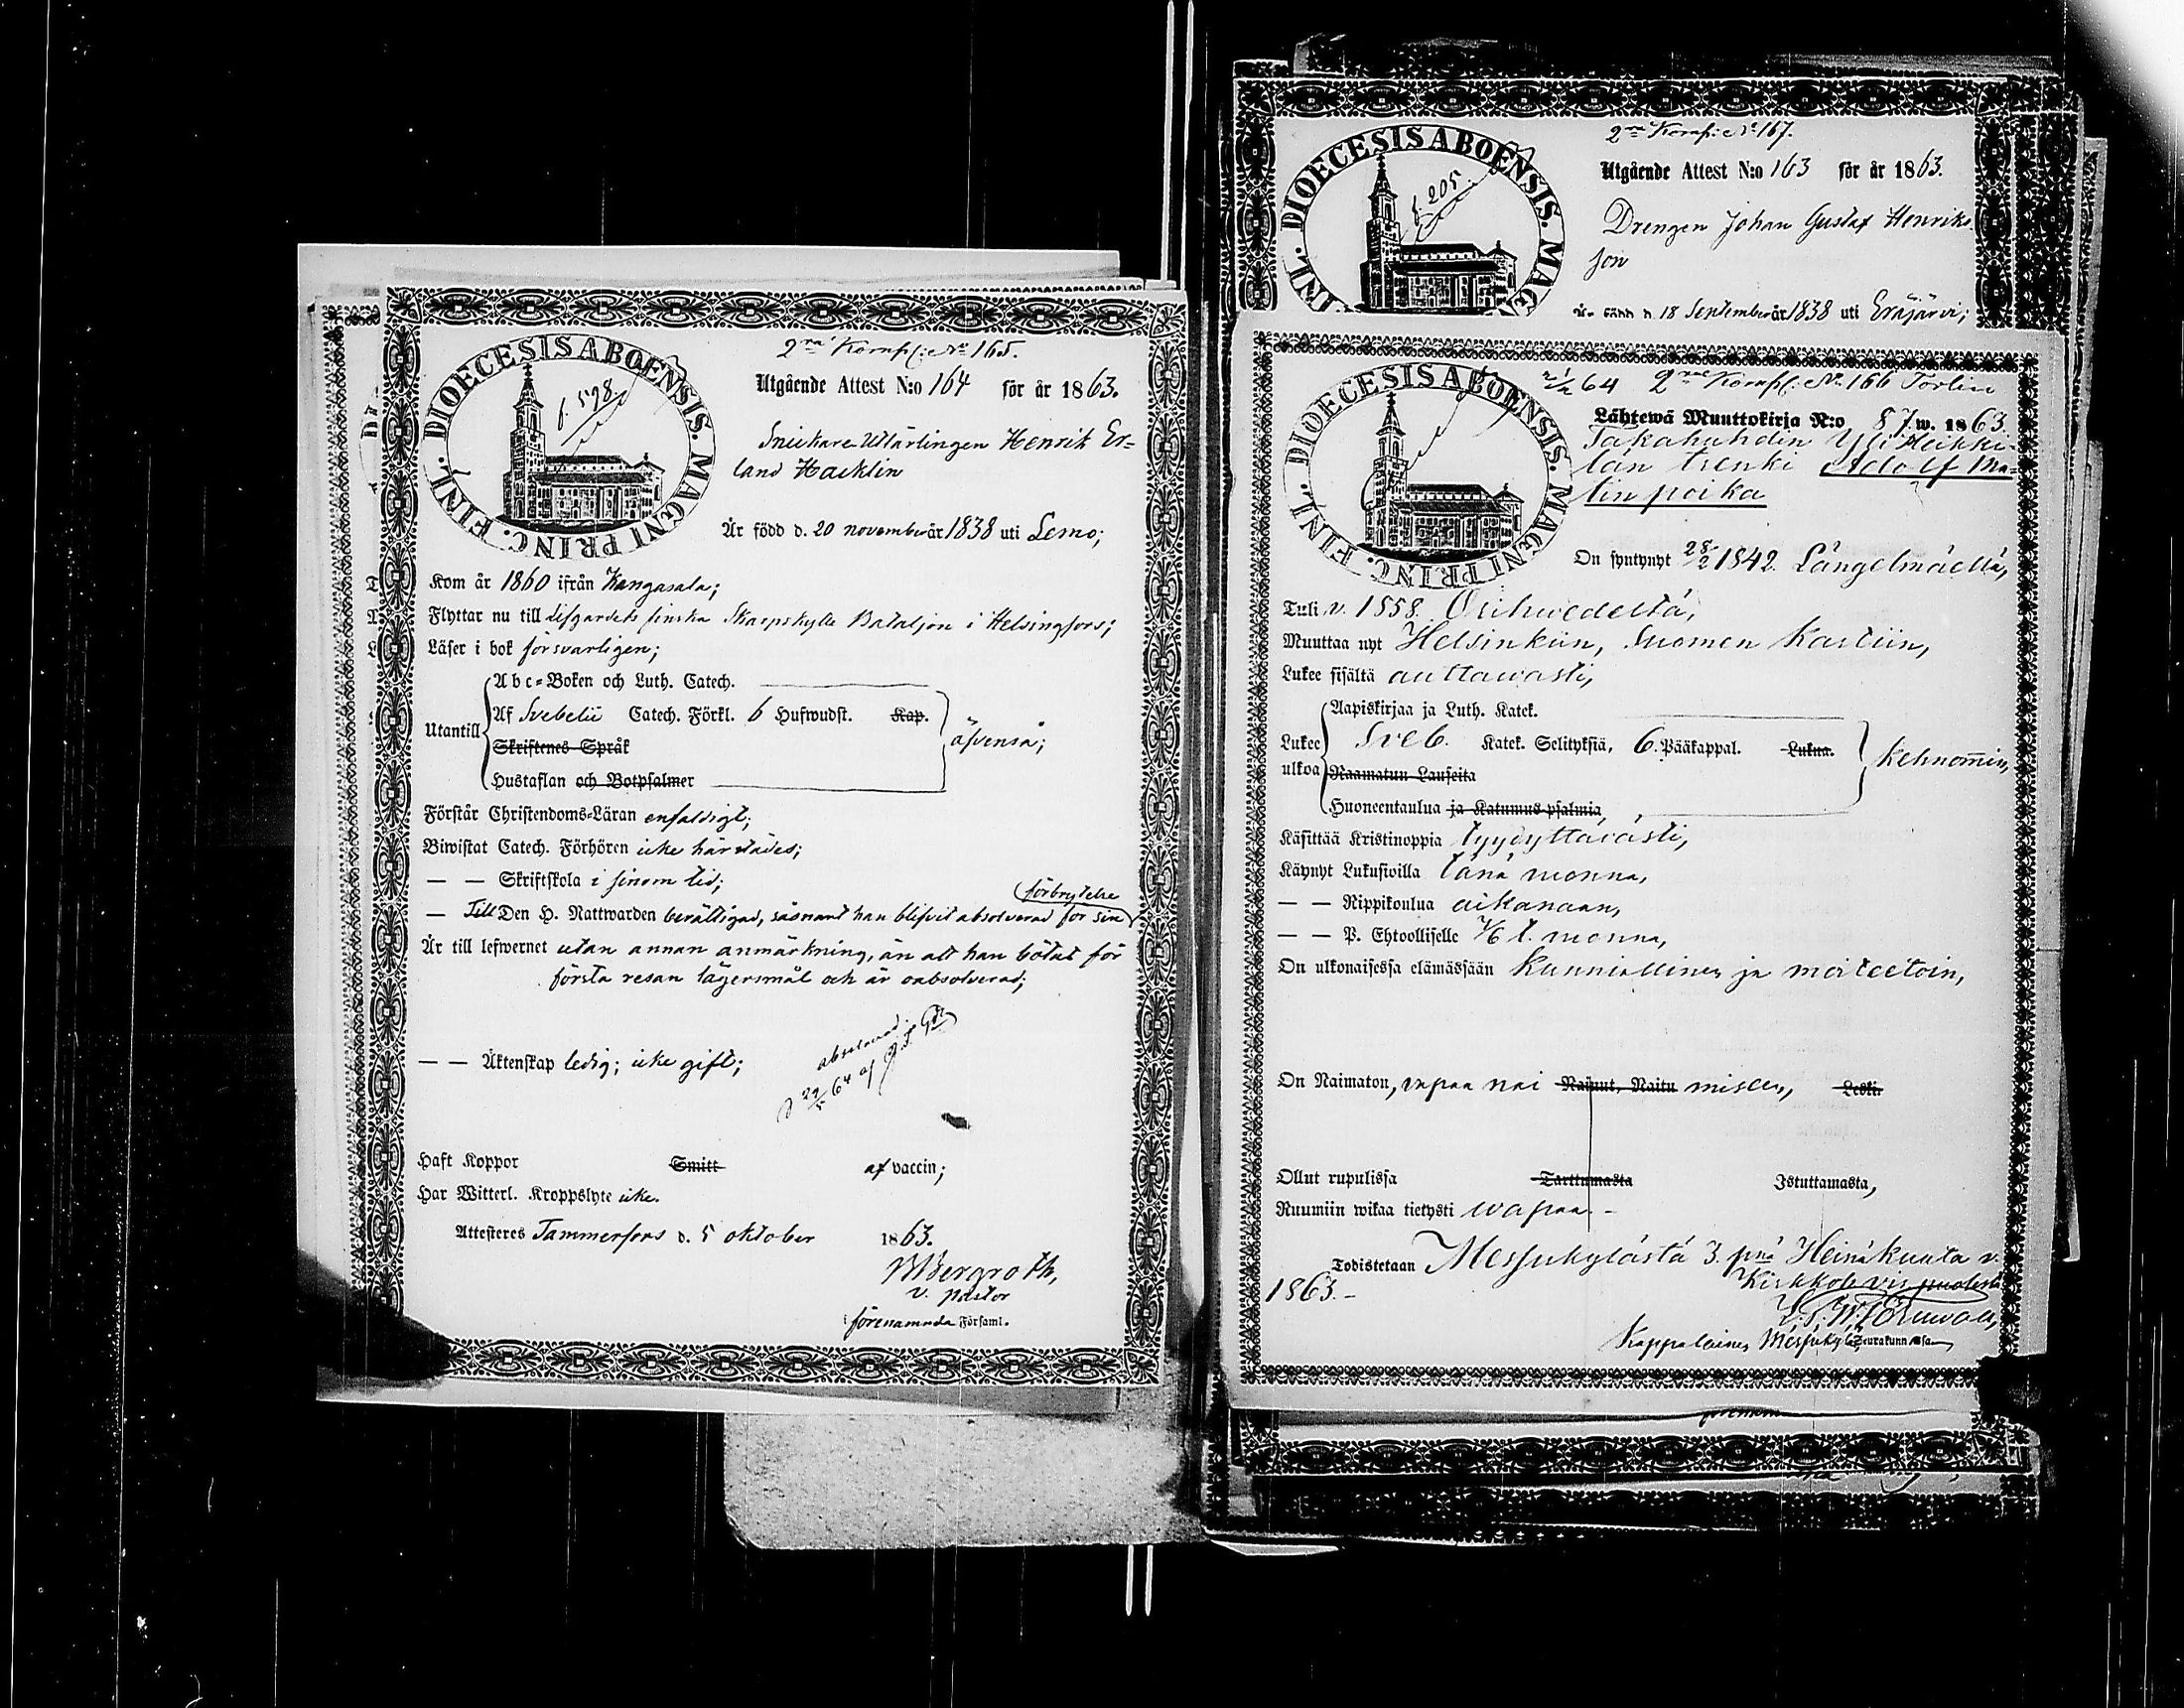 2ra Komp:e No 165.
DIOECESIS ABOENSIS. MAGNI PRINC. FINL.
f. 598
Utgående Attest N:o 164 för år 1863.
Snickare Utlärlingen Henrik Er-
land Hacklin
Är född d. 20 november år 1838 uti Lemo;
Kom år 1860 ifrån Kangasala;
Flyttar nu till Lifgardets finska Skarpskytte Bataljon i Helsingfors;
Läser i bok försvarligen;
Utantill
Abc-Boken och Luth. Catech.
Af Svebelii Catech. Förkl. 6 Hufwudst. Kap.
Skriftenes Språk
Hustaflan och Botpsalmer
äfvenså;
Förstår Christendoms-Läran enfaldigt;
Biwistat Catech. Förhören icke härstädes;
— — Skriftskola i sinom tid;
— Till Den H. Nattwarden berättigad, såsnart han blifvit absolverad för sin
förbrytelse
Är till lefwernet utan annan anmärkning, än att han bötat för
första resan lägersmål och är oabsolverad;
absolverad
— — Äktenskap ledig; icke gift;
Haft Koppor Smitt af vaccin;
Har Witterl. Kroppslyte icke.
Attesteres Tammerfors d. 5 oktober 1863.
Bergroth,
v. pastor
i förenämnda Församl.
2ra Komp:e No 167.
DIOECESIS ABOENSIS. MAG
INL.
f. 205.
Utgående Attest N:o 163 för år 1863.
Drengen Johan Gustaf Henriks
son
Är född d. 18 September år 1838 uti Eräjärvi;
64 2ra Komp:e No 166 Törlin
DIOECESIS ABOENSIS. MAGNI PRINC. FINL.
Lähtewä Muuttokirja N:o 87 w. 1863.
Takahuhdin Yli Heikki-
län trenki Adolf Ma-
tin poika
On syntynyt 28/2 1842. Längelmäellä,
Tuli v. 1858. Orihwedeltä,
Muuttaa nyt Helsinkiin, Suomen Kaartiin,
Lukee sisältä auttawasti,
Lukee
ulkoa
Aapiskirjaa ja Luth. Katek.
Sveb. Katek. Selityksiä, 6. Pääkappal. Lukua.
Raamatun Lauseita
Huoneentaulua ja Katumus-psalmia
kehnommin,
Käsittää Kristinoppia tyydyttäwästi,
Käynyt Lukusioilla tänä wuonna,
— — Rippikoulua aikanaan,
— — P. Ehtoollisella 7/6 t. wuonna,
On ulkonaisessa elämässään kunniallinen ja moiteetoin,
On Naimaton, wapaa nai Nainut, Naitu miseen, Leski.
Ollut rupulissa Tarttumasta Istuttamasta,
Ruumiin wikaa tietysti wapaa. -
Todistetaan Messukylästä 3. pnä Heinäkuuta v.
1863. -
Kappalainen Messukylä Seurakunnassa